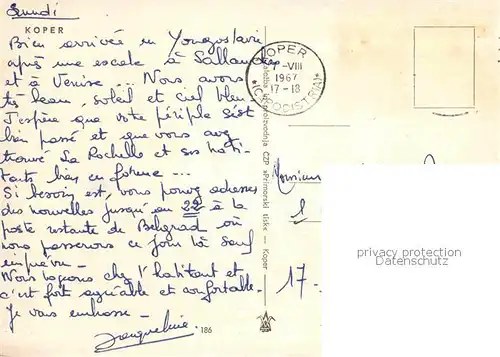 Lundi
KOPER
Bien arrivée en Yougoslavie
après une escale à Sallanches
et à Venise... Nous avons
très beau, soleil et ciel bleu.
J'espère que votre périple s'est
bien passé et que vous avez
trouvé La Rochelle et ses habi-
tants bien en forme...
Si besoin est, vous pouvez adresser
des nouvelles jusqu'au 22 à la
poste restante de Belgrad où
nous passerons ce jour là sauf
imprévu -
Nous logeons chez l'habitant et
c'est fort agréable et confortable.
Je vous embrasse -
Jacqueline
186
KOPER
-VIII
1967
17-18
(CAPODISTRIA)
Založba in proizvodnja CZP »Primorski tisk« — Koper
Monsieur
17-
privacy protection
Datenschutz